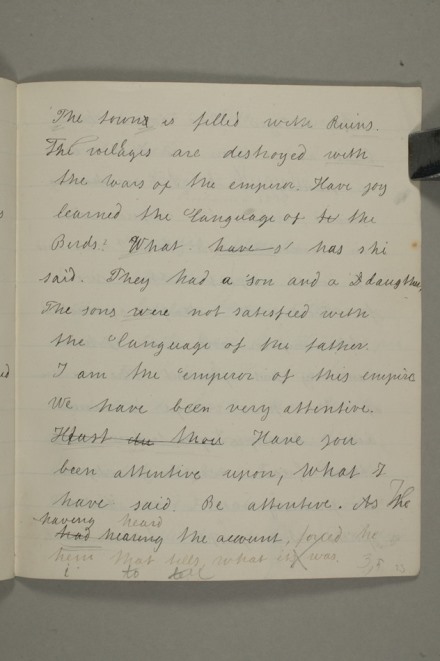 The town is filled with Ruins.
The vilages are destroyed with
the wars of the emperor. Have joy
learned the Language of the
Birds! What have s' has shi
said. They had a son and a daughter,
The sons were not satisfied with
the language of the father.
I am the emperor of this empire
We have been very attentive.
Hast du thou Have you
been attentive upon, What I
have said. Be attentive. As The
having heard
had hearing the account, forced he
him that tells what it was.
to